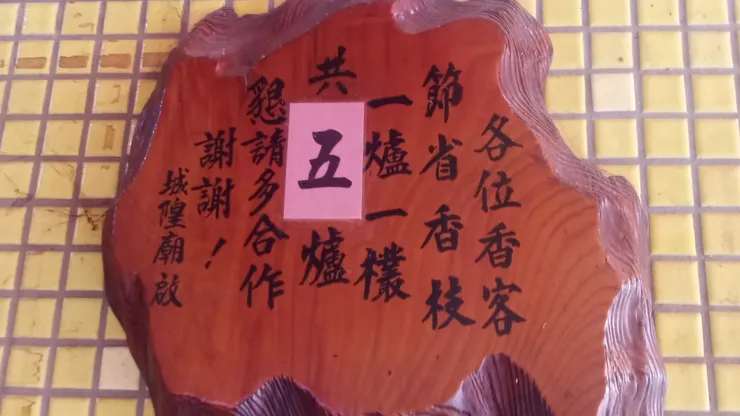 各位香客
節省香枝
一爐一欉
共五爐
懇請多合作
謝謝！
城隍廟啟